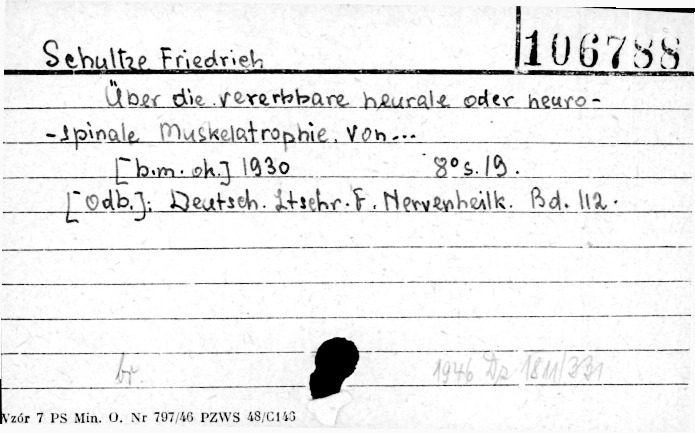 Schultze Friedrich
106788
Über die vererbbare neurale oder neuro-
-spinale Muskelatrophie. von...
[b.m. ok.] 1930 8° s. 19.
[Odb.]: Deutsch. Ztschr. F. Nervenheilk. Bd. 112.
br. 1946 Dz 1811/331
Wzór 7 PS Min. O. Nr 797/46 PZWS 48/C146